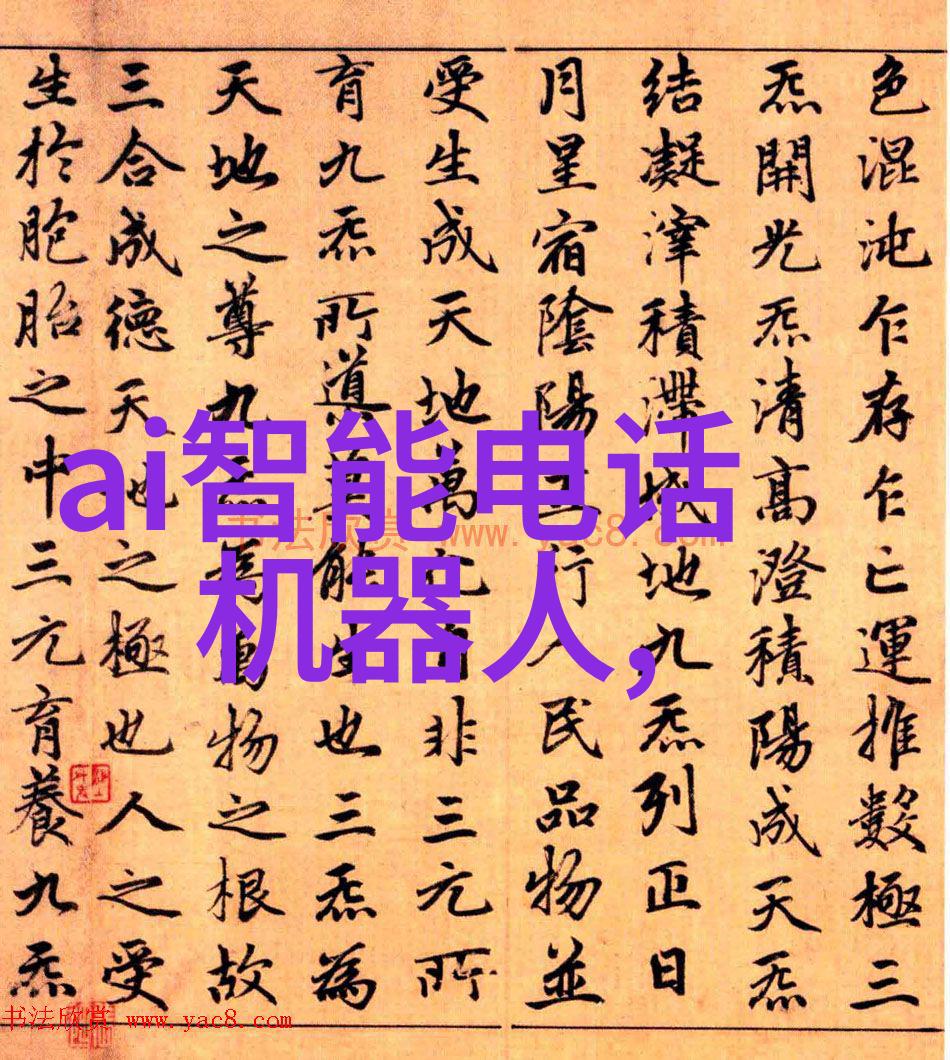 色混沌乍存乍亡運推數極三
炁開光炁清高澄積陽成天炁
結凝滓積滯成地九炁列正日
月星宿陰陽五行人民品物並
受生成天地萬化非三元所
育九炁所道莫能生也三炁為
天地之尊九炁為萬物之根故
三合成德天地之極也人之受
生於胞胎之中三元育養九炁
ai智能电话
机器人,
书法欣赏 www.yac8.com
书法欣赏 www.yac8.com